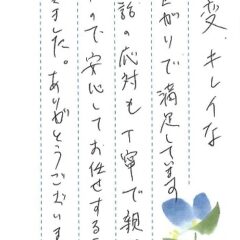 変、キレイな
上がりで満足しています
話の応対も丁寧で親
ので安心してお任せする
ました。ありがとうございま